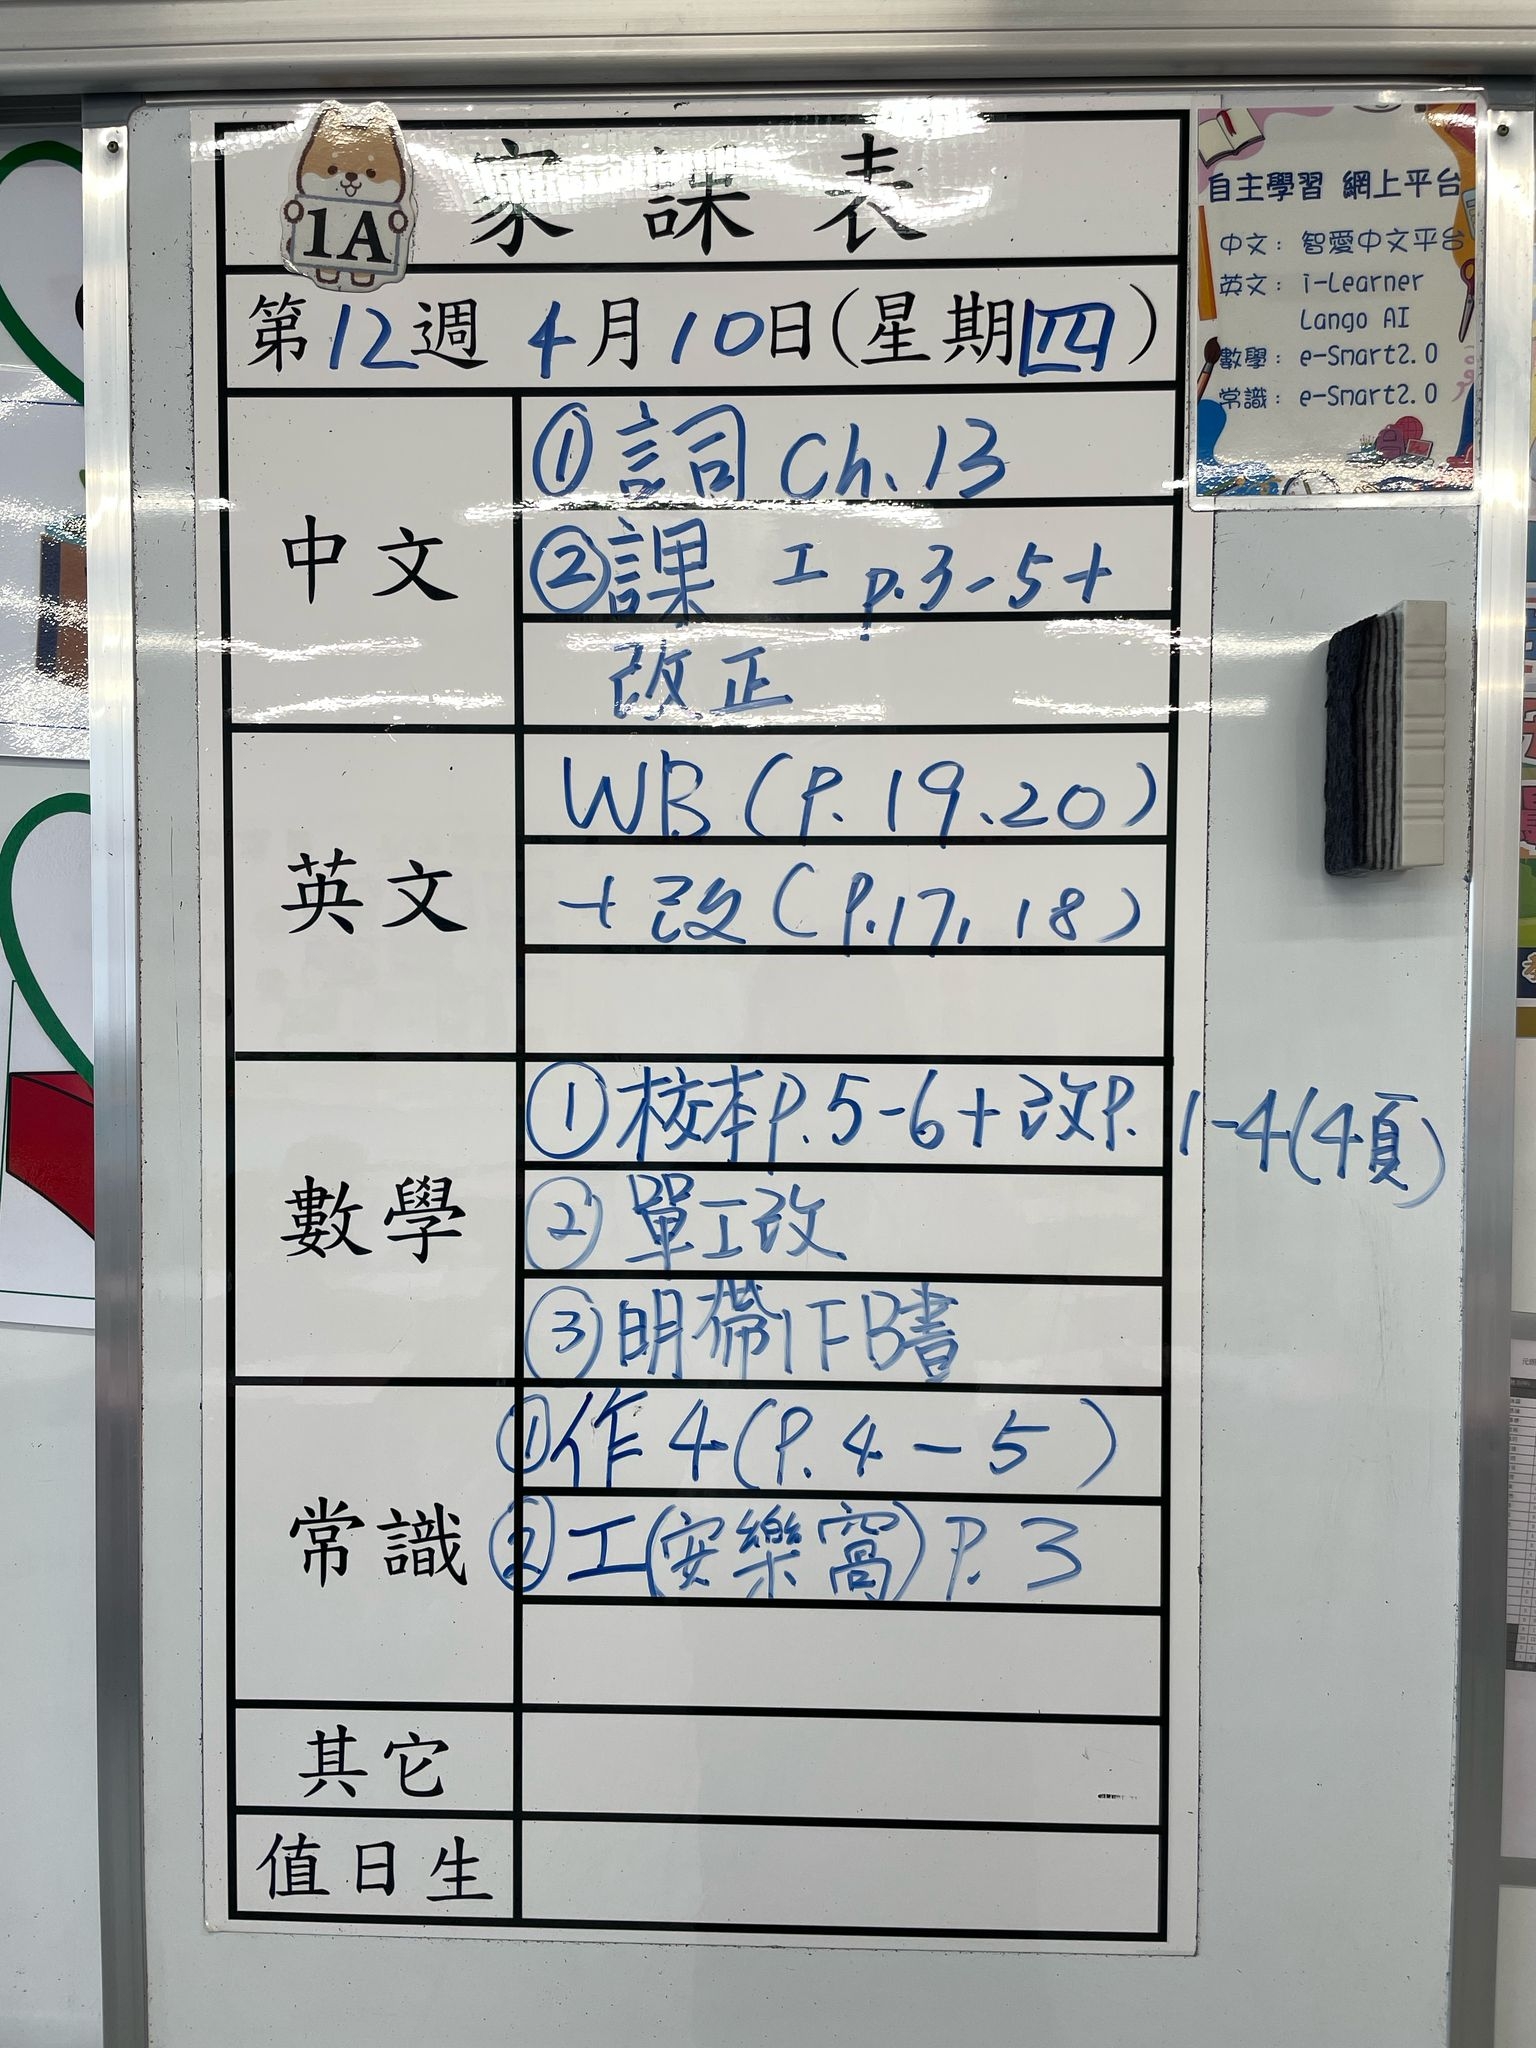 家課表
1A
第12週 4月10日(星期四)
中文
①詞 Ch.13
②課 工 p.3-5+
改正
英文
WB (P.19.20)
+改(P.17, 18)
數學
①校本P.5-6+改P.1-4(4頁)
②單工改
③明帶1FB書
常識
①作4(P.4-5)
②工(安樂窩)P.3
其它
值日生
自主學習 網上平台
中文: 智愛中文平台
英文: i-Learner
Lango AI
數學: e-Smart2.0
常識: e-Smart2.0